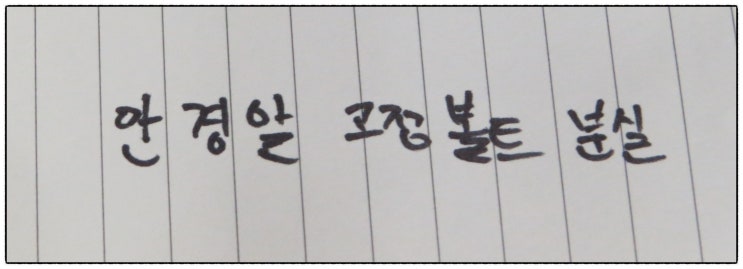 안경알 고정볼트 분실